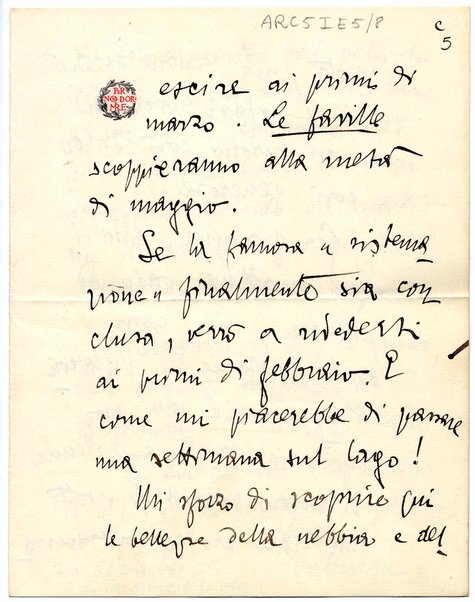 ARC5IE5/8
c
5
PER
NON DOR
MIRE
escire ai primi di
marzo. Le faville
scoppieranno alla metà
di maggio.
Se la famosa "sistema
zione" finalmente sia con
clusa, verrò a rivederti
ai primi di febbraio. E
come mi piacerebbe di passare
una settimana sul lago!
Mi sforzo di scoprire qui
le bellezze della nebbia e del